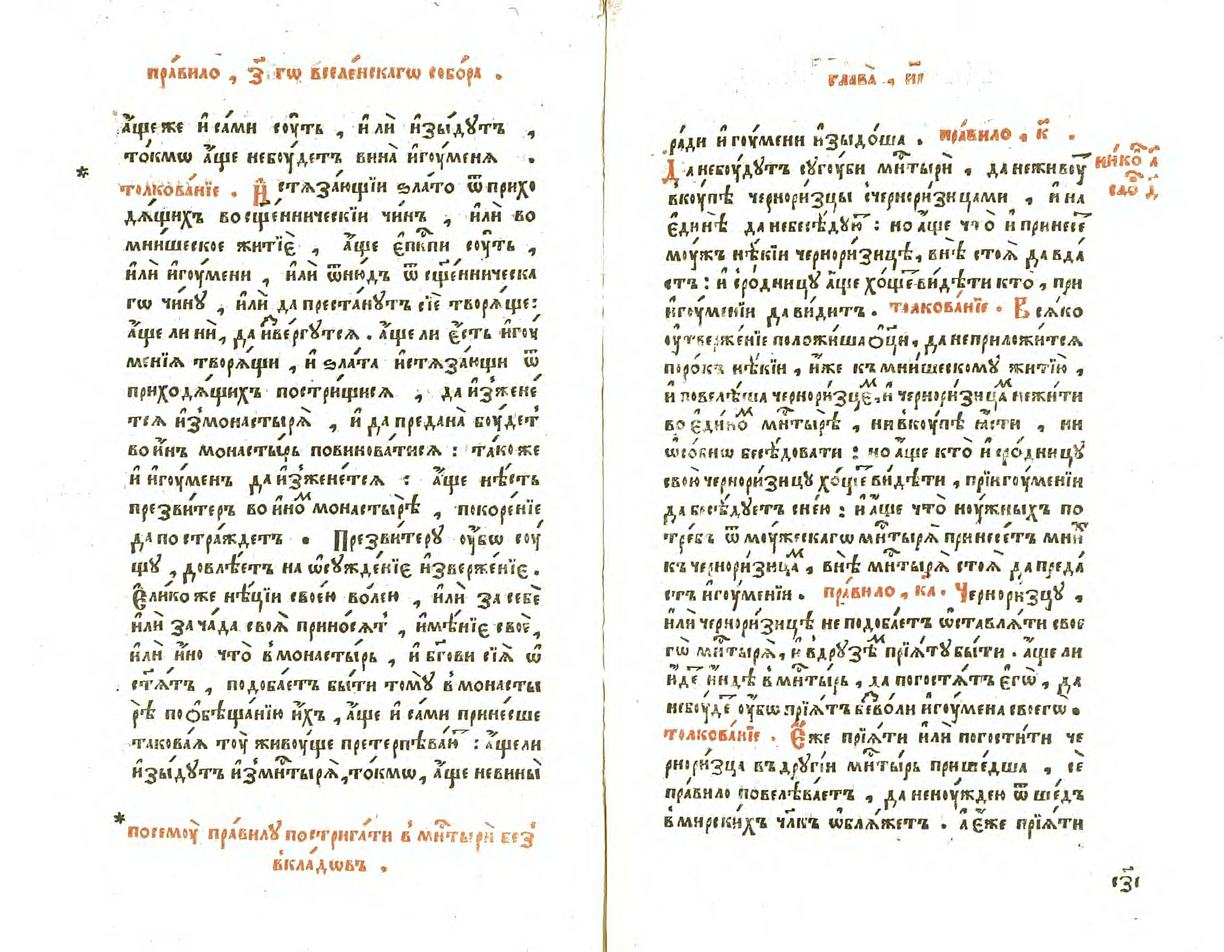 пра́вило , з҃ гѡ вселе́нскагѡ собо́ра .
а҆́ще же и҆ са́ми сꙋ́ть , и҆ лѝ и҆зы́дꙋтъ ,
то́кмѡ а҆́ще небꙋ́детъ вина̀ и҆гꙋ́менѧ .
толкова́нїе . И҆ стѧза́ющїи ѕла́то ѿ прихо
дѧ́щихъ во сщ҃е́нническїи чи́нъ , и҆лѝ во
мни́шеское житїѐ , а҆́ще є҆пⷭ҇кпи сꙋ́ть ,
и҆лѝ и҆гꙋ́мени , и҆лѝ ѿню́дъ ѿ сщ҃е́нническа
гѡ чи́нꙋ , и҆лѝ да преста́нꙋтъ сїѐ творѧ́ще :
а҆́ще ли нѝ , да и҆зве́ргꙋтсѧ . а҆́ще ли є҆́сть и҆гꙋ́
менїѧ творѧ́щи , и҆ ѕла́та и҆стѧза́ющи ѿ
приходѧ́щихъ постри́щисѧ , да и҆зжене́
тсѧ и҆змонастырѧ̀ , и҆ да предана̀ бꙋ́детъ
во и҆́нъ монасты́рь повинова́тисѧ : та́коже
и҆ и҆гꙋ́менъ да и҆зжене́тсѧ : а҆́ще нѣ́сть
презви́теръ во и҆но́ⷨ монастырѣ̀ , покоре́нїе
да постра́ждетъ . Презви́терꙋ ᲂу҆́бѡ сꙋ́
щꙋ , довлѣ́етъ на ѡ҆сꙋжде́нїе и҆зверже́нїе .
Є҆ли́ко же нѣ́цїи свое́ю во́лею , и҆лѝ за себѐ
и҆лѝ за ча́да своѧ̀ прино́сѧтъ , и҆мѣ́нїе своѐ ,
и҆лѝ и҆́но что̀ вмонасты́рь , и҆ бг҃ови сїѧ̀ ѡ҆
ст҃ѧ́тъ , подоба́етъ бы́ти томꙋ̀ в монасты
рѣ̀ по ѻ҆бѣща́нїю и҆́хъ , а҆́ще и҆ са́ми прине́сше
такова́ѧ тꙋ̀ живꙋ́ще претерпѣва́ю : а҆́ще ли
и҆зы́дꙋтъ и҆змⷭ҇нтырѧ̀ , то́кмѡ , а҆́ще невины̀
* посемꙋ̀ пра́вилꙋ постриѓати в мⷭ҇нтырѝ без̾
вкла́дѡвъ .
глава̀ , и҃і
ра́ди и҆гꙋ́мени и҆зыдо́ша . пра́вило , к҃ .
Да небꙋ́дꙋтъ сꙋгꙋ́би мⷭ҇нтырѝ , да неживꙋ́
вкꙋ́пѣ чернори́зцы счернори́зицами , и҆ на
є҆ди́нѣ да небесѣ́дꙋю : но а҆́ще что̀ и҆ принесе́
мꙋ́жъ нѣ́кїи чернори́зицѣ , внѣ̀ стоѧ̀ да вда́
стъ : и҆ сро́дницꙋ а҆́ще хо́ще ви́дѣти кто̀ , при
и҆гꙋ́менїи да ви́дитъ . толкова́нїе . Всѧ́ко
ᲂу҆тверже́нїе положи́ша ѻ҆ц҃ы̀ , да неприложи́тсѧ
поро́къ нѣ́кїи , и҆́же къ мни́шескомꙋ житїю̀ ,
и҆ повелѣ́ша чернори́зцеⷨ , и҆ чернори́зицаⷨ нежи́ти
во є҆ди́ноⷨ мⷭ҇нтырѣ̀ , ни вкꙋ́пѣ ꙗ҆́сти , ни
ѡ҆со́бнѡ бесѣ́довати : но а҆́ще кто̀ и҆ сро́дницꙋ
свою̀ чернори́зицꙋ хо́ще ви́дѣти , при и҆гꙋ́менїи
да бесѣ́дꙋетъ сне́ю : и҆ а҆́ще что̀ нꙋ́жныхъ по
тре́бъ ѿ мꙋ́жескагѡ мⷭ҇нтырѧ̀ принесе́тъ мни́ⷯ
къ чернори́зицаⷨ , внѣ̀ мⷭ҇нтырѧ̀ стоѧ̀ да преда́
стъ и҆гꙋ́менїи . пра́вило , ка҃ . Чернори́зцꙋ ,
и҆лѝ чернори́зицѣ не подоба́етъ ѡ҆ставлѧ́ти свое
гѡ̀ мⷭ҇нтырѧ̀ , и҆ вдрꙋ́зѣⷨ прїѧ́тꙋ бы́ти . а҆́ще ли
и҆́де и҆́ндѣ вмⷭ҇нты́рь , да погостѧ́тъ є҆го̀ , да
небꙋ́де ᲂу҆́бѡ прїѧ́тъ безво́ли и҆гꙋ́мена своегѡ̀ .
толкова́нїе . Є҆́же прїѧ́ти и҆лѝ погости́ти че
рнори́зца въ дрꙋгі́и мⷭ҇нты́рь прише́дша , сѐ
пра́вило повелѣва́етъ , да ненꙋ́ждею ѿше́дъ
вмирски́хъ чл҃къ ѡ҆блѧ́жетъ . А҆ є҆́же прїѧ́ти
з҃і